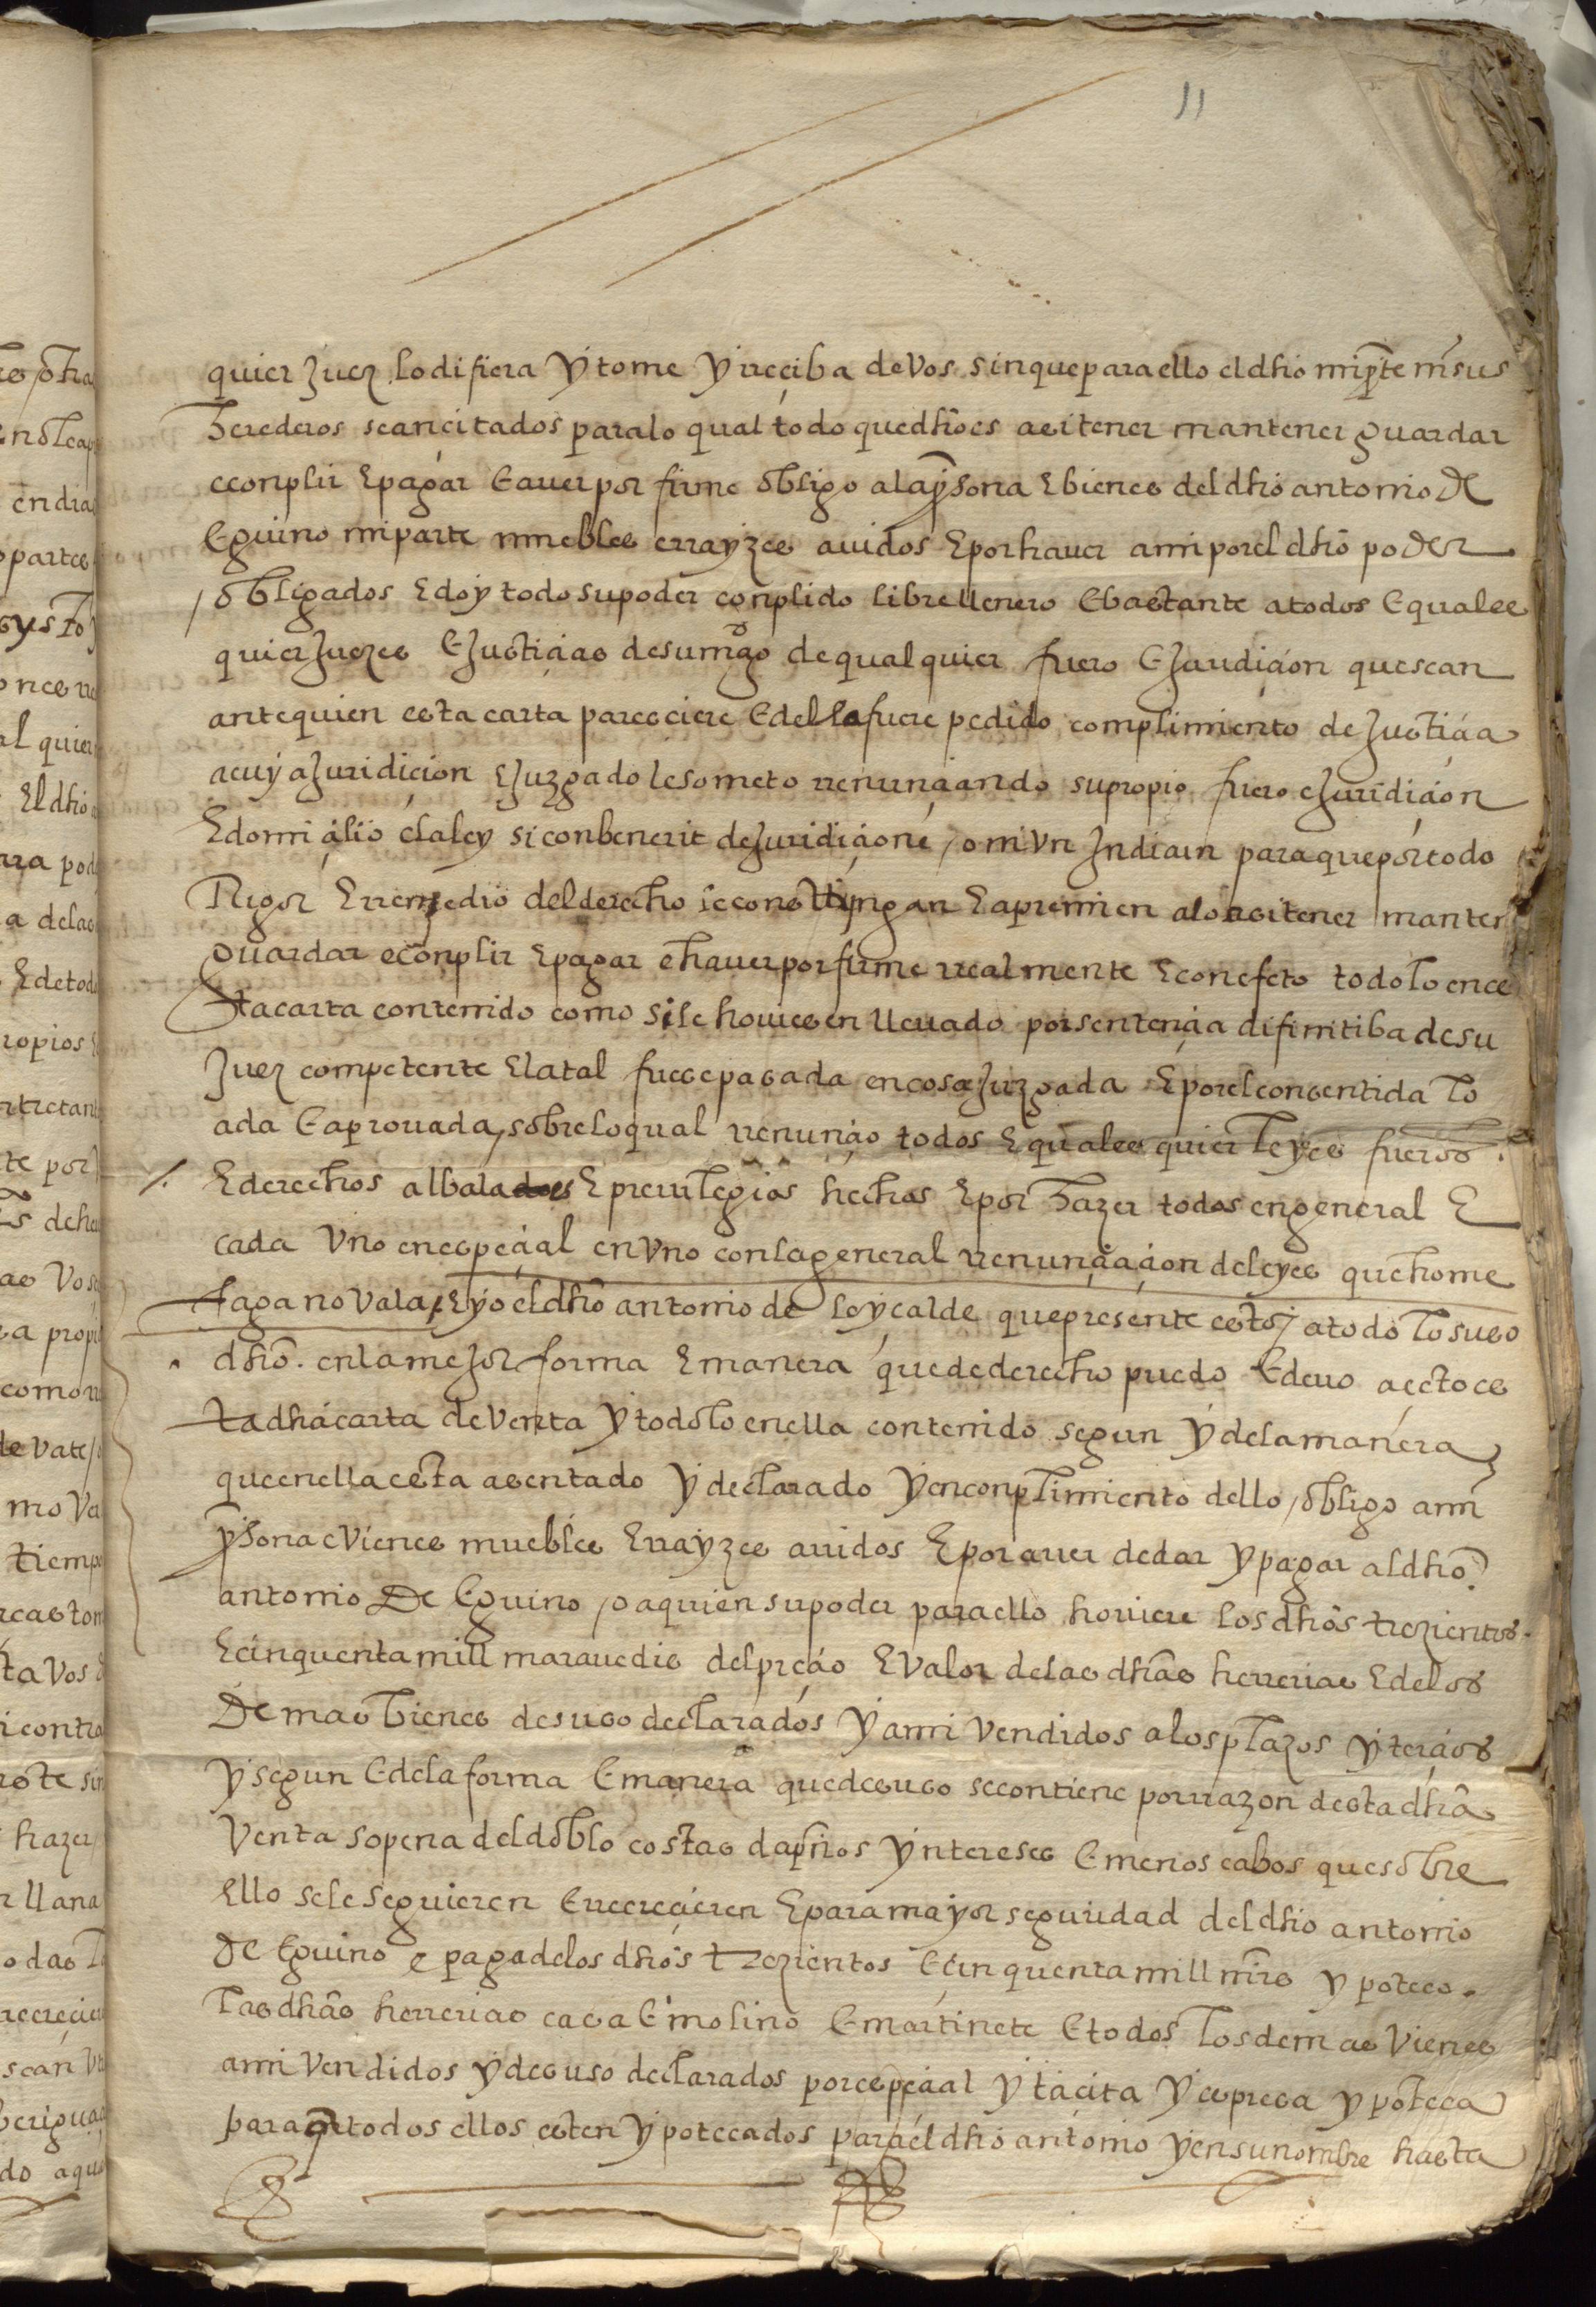 11
quier Juez lo difiera y tome y rreciba de vos sin que para ello el dho mi pte ni sus
herederos sean citados para lo qual todo que dho es asi tener mantener guardar
e conplir E pagar E auer por firme obligo a la psona E bienes del dho antonio de
Eguino mi parte muebles e rrayzes auidos E por hauer a mi por el dho poder
obligados E doy todo su poder conplido libre llenero E bastante a todos E quales
quier Juezes E Justicias de su mgd o de qualquier fuero E Juridicion que sean
ante quien esta carta paresciere E della fuere pedido complimiento de Justicia
a cuya Juridicion E Juzgado le someto rrenunciando su propio fuero e Juridicion
E domicilio e la ley si conbenerit de Juridicione, omivn Judicun para que por todo
Rigor E rremedio del derecho le constringan E apremien a lo asi tener manten
guardar e conplir E pagar e hauer por firme rrealmente E con efeto todo lo en es
ta carta contenido como si le houiesen lleuado por sentencia difinitiba de su
Juez competente E la tal fuese pasada en cosa Juzgada E por el consentida lo
ada E aprouada, sobre lo qual rrenuncio todos E quales quier leyes fueros.
E derechos albalaes E preuilegios hechos E por hazer todos en general E
cada vno en especial en vno con la general rrenunciacion de leyes que home
faga no vala, E yo el dho antonio de loycalde que presente estoy a todo lo suso
dho. en la mejor forma E manera que de derecho puedo E deuo aceto es
ta dha carta de venta y todo lo en ella contenido segun y de la manera
que en ella esta asentado y declarado y en conplimiento dello, obligo a mi
psona e vienes muebles E rrayzes auidos E por auer de dar y pagar al dho
antonio De Eguino, o a quien su poder para ello houiere los dhos trezientos.
E cinquenta mill marauedis del precio E valor de las dhas herrerias E de los
De mas bienes de suso declarados y a mi vendidos a los plazos y tercios
y segun E de la forma E manera que de suso se contiene por rrazon desta dha
venta so pena del doblo costas dapnos yntereses E menos cabos que sobre
Ello se le seguieren E rrecrecieren E para mayor seguridad del dho antonio
De Eguino e paga de los dhos trezientos E cinquenta mill mrs ypoteco.
las dhas herrerias casa E molino E martinete E todos los demas vienes
a mi vendidos y de suso declarados por especial y tacita y espresa ypoteca
para q todos ellos esten ypotecados para el dho antonio y en su nombre hasta